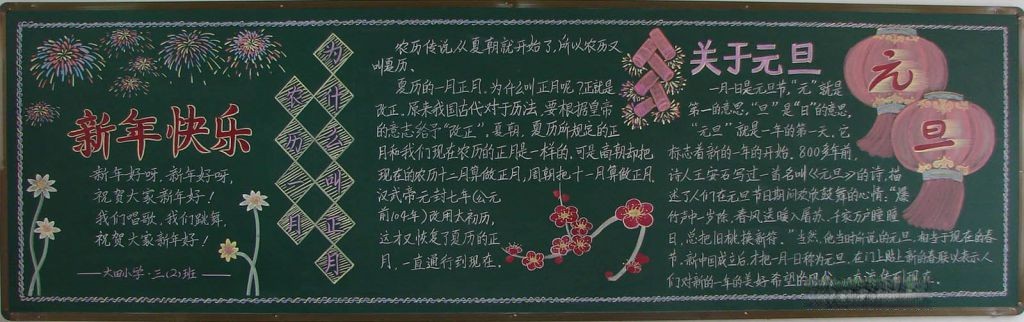 新年快乐
新年好呀，新年好呀，
祝贺大家新年好！
我们唱歌，我们跳舞，
祝贺大家新年好！
——大田小学·三(2)班——
为什么叫正月
农历一月
农历传说从夏朝就开始了，所以农历又
叫夏历。
夏历的一月正月。为什么叫正月呢？正就是
改正。原来我国古代对于历法，要根据皇帝
的意志给予"改正"。夏朝，夏历所规定的正
月和我们现在农历的正月是一样的，可是商朝却把
现在的农历十二月算做正月，周朝把十一月算做正月
汉武帝元封七年(公元
前104年)改用太初历，
这才又恢复了夏历的正
月，一直通行到现在。
关于元旦
一月一日是元旦节，"元"就是
第一的意思，"旦"是"日"的意思，
"元旦"就是一年的第一天。它
标志着新的一年的开始。800多年前，
诗人王安石写过一首名叫《元旦》的诗，描
述了人们在元旦节日期间欢欣鼓舞的心情："爆
竹声中一岁除，春风送暖入屠苏，千家万户瞳瞳
日，总把旧桃换新符。"当然，他当时所说的元旦，相当于现在的春
节。新中国成立后才把一月一日称为元旦，在门上贴上新的春联以表示人
们对新的一年的美好希望的风俗，
到现在。
元旦